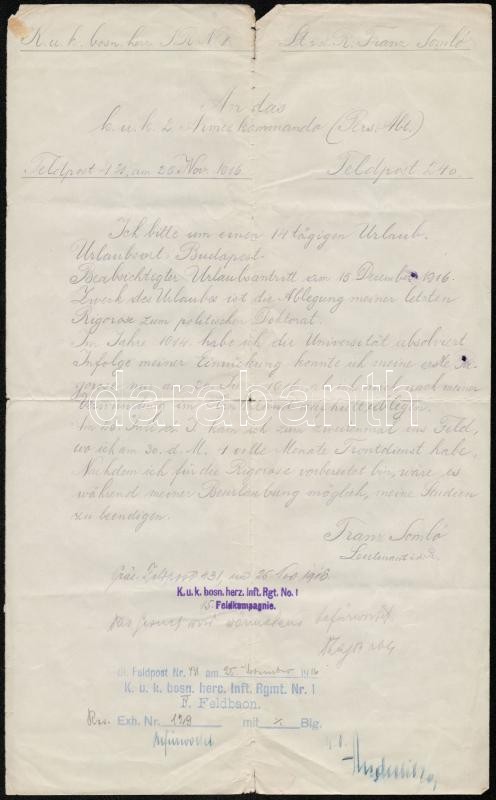 K. u. k. bosn. herz. I. R. N. 1. Lt. i. d. R. Franz Somló
An das
k. u. k. 2. Armeekommando (Pers. Abt.)
am 25 Nov. 1916. Feldpost 240.
Ich bitte um einen 14 tägigen Urlaub.
Urlaubsort: Budapest.
Beabsichtigter Urlaubsantritt am 15 Dezember 1916.
Zweck des Urlaubes ist die Ablegung meiner letzten
Rigorose zum politischen Doktorat.
Im Jahre 1914. habe ich die Universität absolviert
Infolge meiner Einrückung konnte ich meine erste
1916 nach meiner
ablegen.
ich zum zweitenmal ins Feld,
wo ich am 30. d. M. 4 volle Monate Frontdienst habe.
Nachdem ich für die Rigorose vorbereitet bin, wäre es
während meiner Beurlaubung möglich, meine Studien
zu beendigen.
Franz Somló
Leutnant i. d. R.
Feldpost 431, am 25 Nov 1916
K. u. k. bosn. herz. Inft. Rgt. No. 1
15. Feldkompagnie.
das Gesuch wird wärmstens befürwortet
Feldpost Nr. 431 am 25. November 1916
K. u. k. bosn. herc. Inft. Rgmt. Nr. 1
F. Feldbaon.
Res. Exh. Nr. 129 mit x Blg.
befürwortet
darabanth